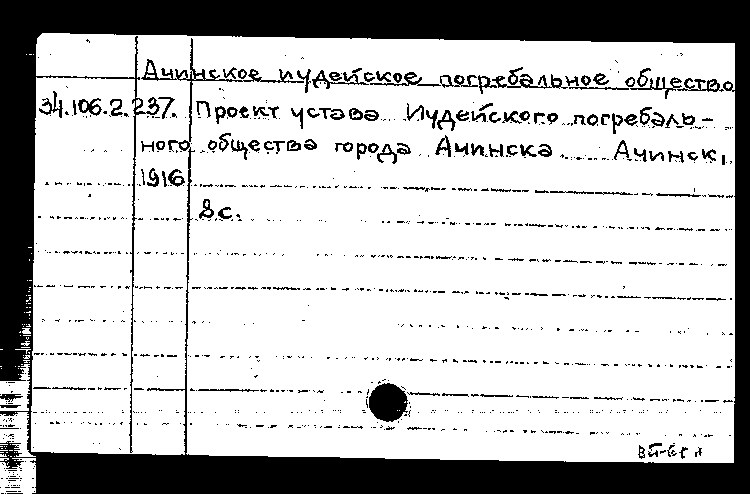 Ачинское иудейское погребальное общество
34.106.2.237. Проект устава Иудейского погребаль-
ного общества города Ачинска. Ачинск,
1916
8 с.